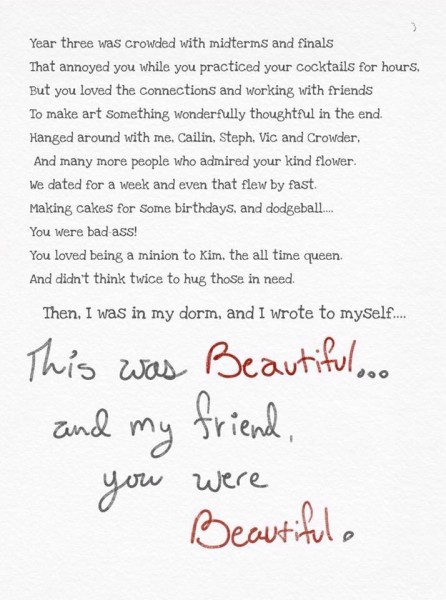 Year three was crowded with midterms and finals
That annoyed you while you practiced your cocktails for hours,
But you loved the connections and working with friends
To make art something wonderfully thoughtful in the end.
Hanged around with me, Cailin, Steph, Vic and Crowder,
And many more people who admired your kind flower.
We dated for a week and even that flew by fast.
Making cakes for some birthdays, and dodgeball....
You were bad-ass!
You loved being a minion to Kim, the all time queen.
And didn't think twice to hug those in need.
Then, I was in my dorm, and I wrote to myself....
This was Beautiful...
and my friend,
you were
Beautiful.